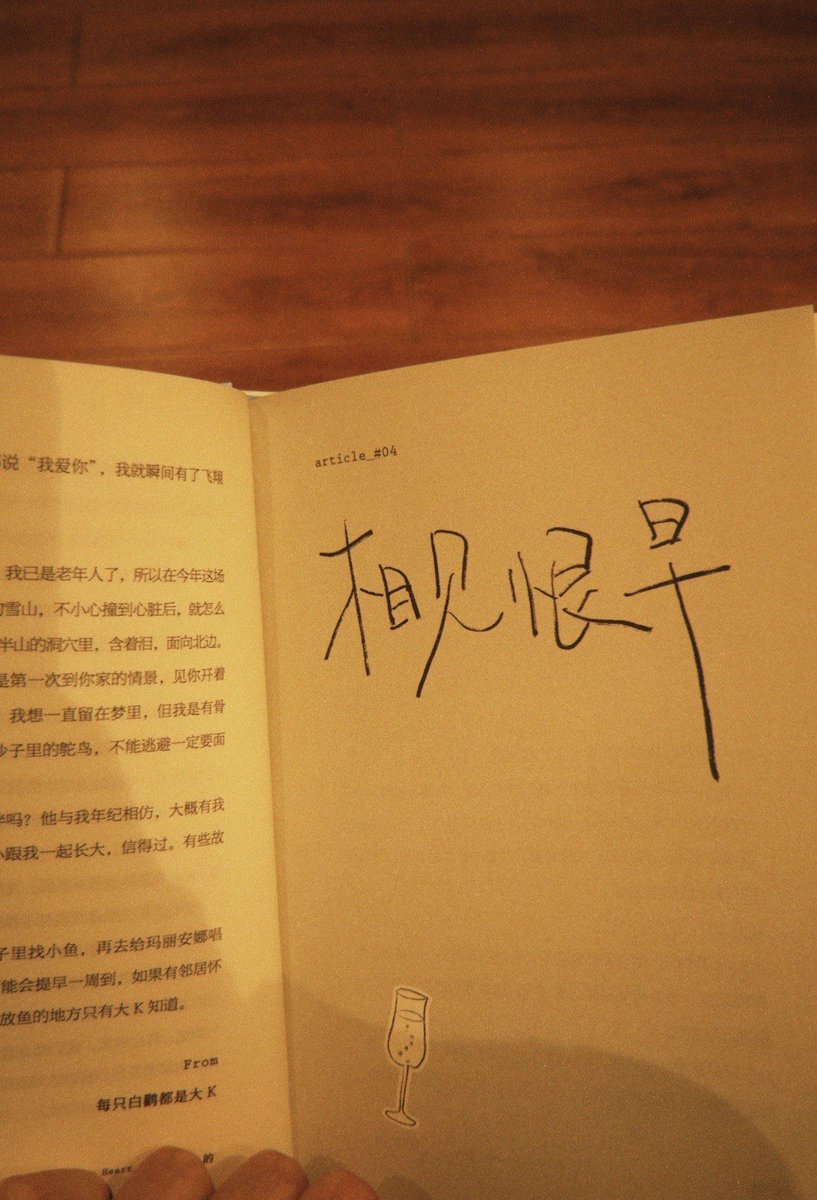 说“我爱你”，我就瞬间有了飞翔
我已是老年人了，所以在今年这场
雪山，不小心撞到心脏后，就怎么
半山的洞穴里，含着泪，面向北边。
是第一次到你家的情景，见你开着
我想一直留在梦里，但我是有骨
子里的鸵鸟，不能逃避一定要面
吗？他与我年纪相仿，大概有我
跟我一起长大，信得过。有些故
子里找小鱼，再去给玛丽安娜唱
能会提早一周到，如果有邻居怀
放鱼的地方只有大K知道。
From
每只白鹳都是大K
Heart
的
article_#04
相见恨早